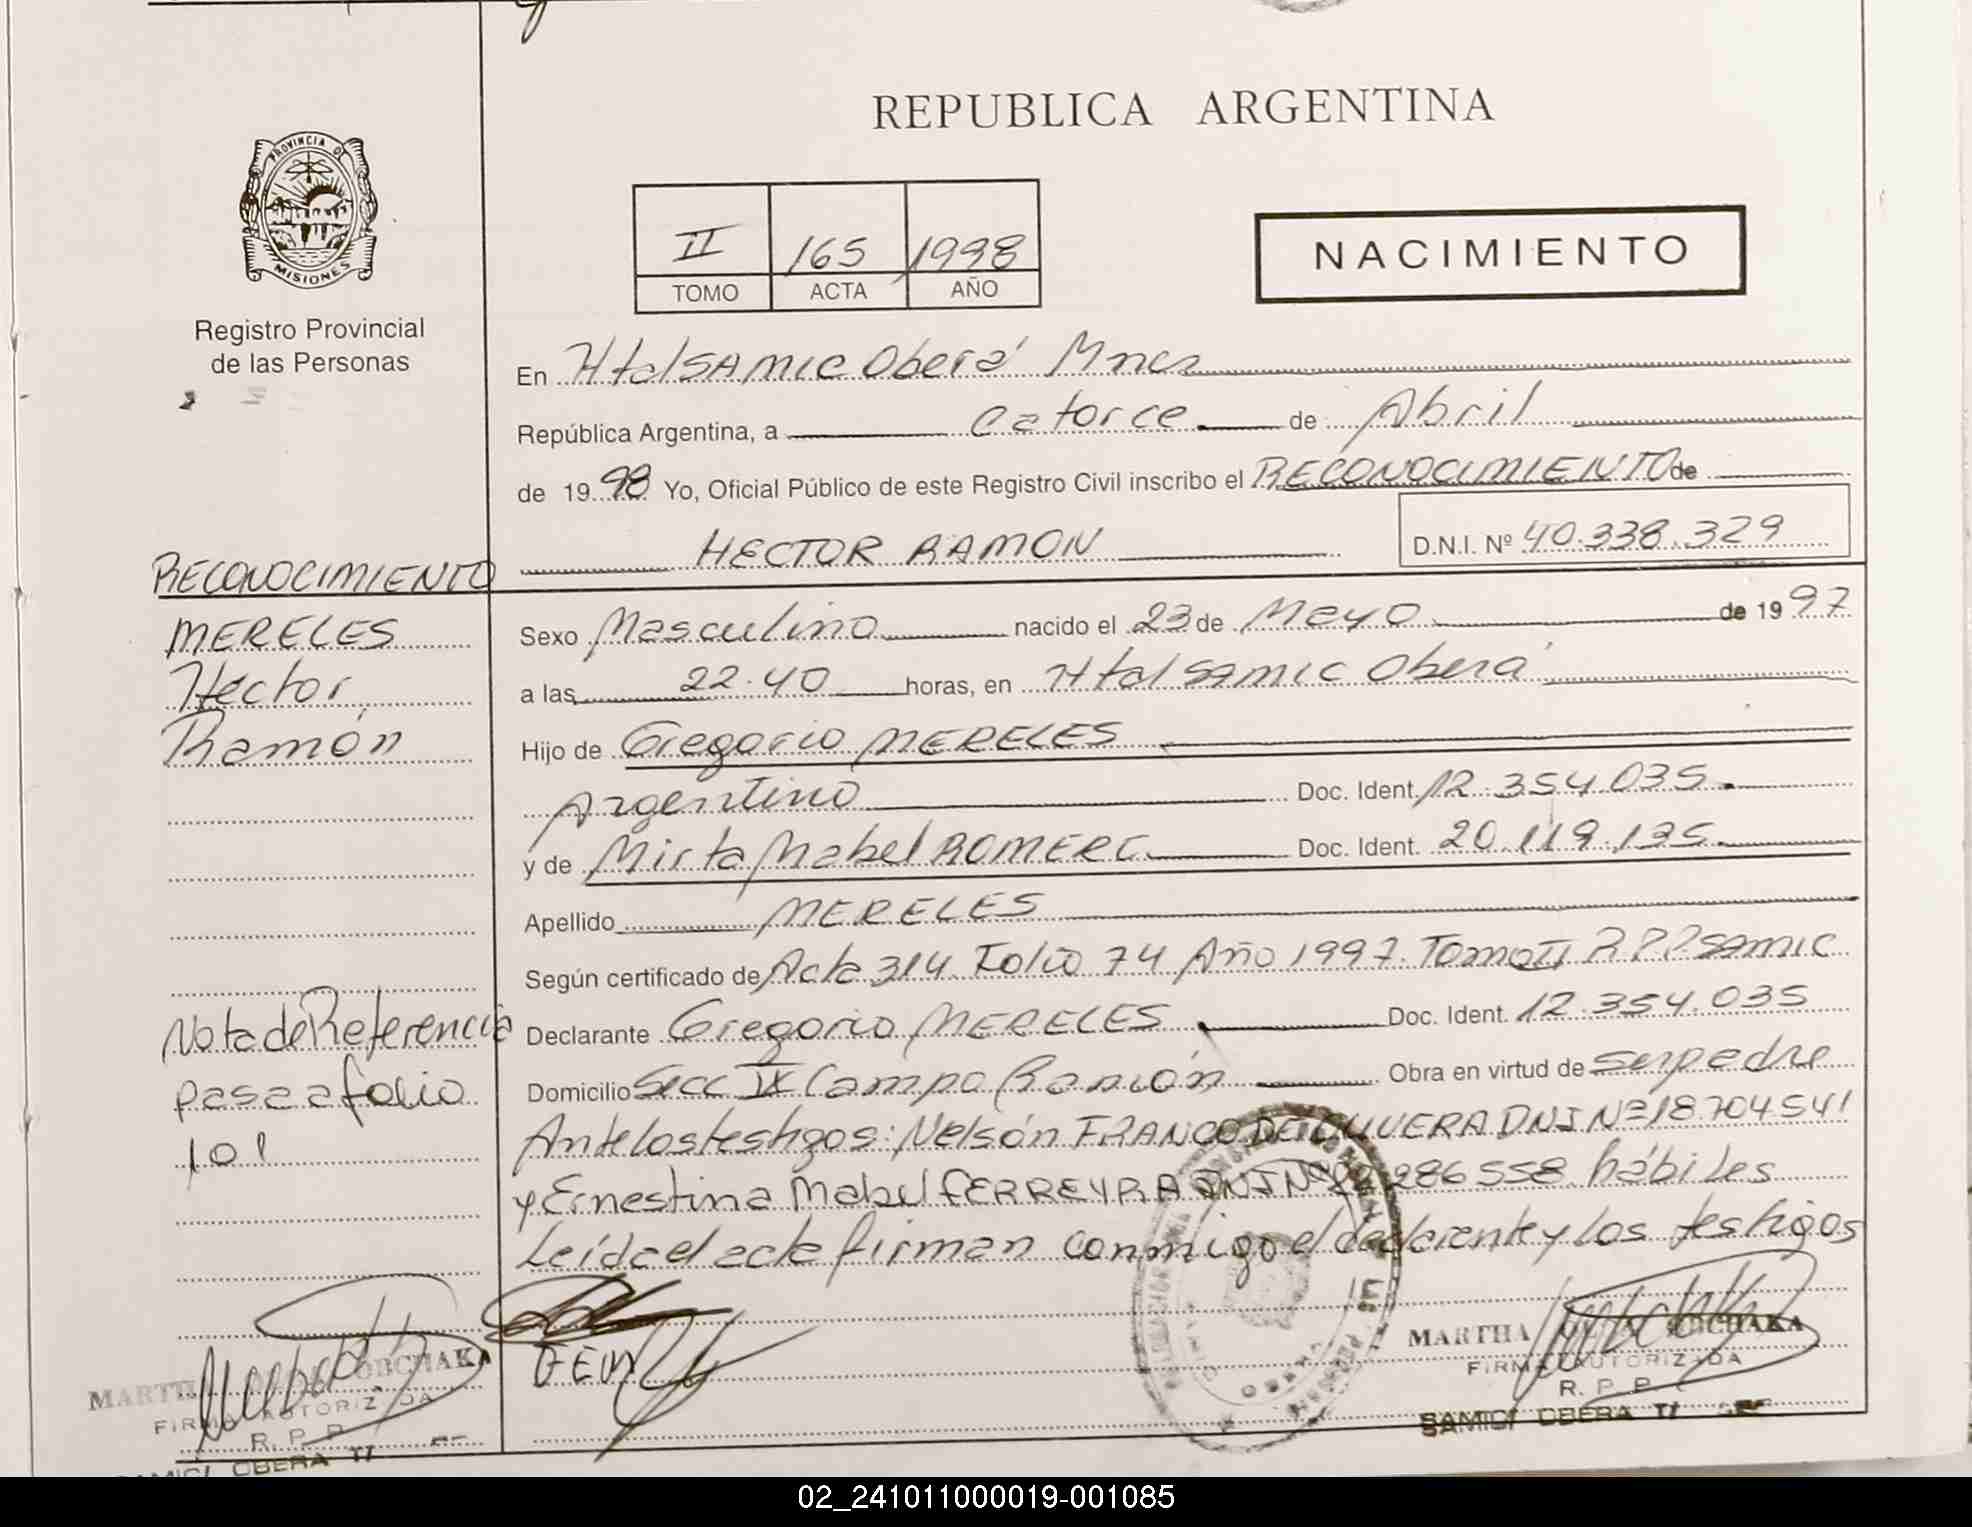 REPUBLICA ARGENTINA
PROVINCIA DE
MISIONES
Registro Provincial
de las Personas
II 165 1998
TOMO ACTA AÑO
NACIMIENTO
En Htal SAMIC Oberá Mnes
República Argentina, a catorce de Abril
de 1998 Yo, Oficial Público de este Registro Civil inscribo el RECONOCIMIENTO de
HECTOR RAMON D.N.I. Nº 40.338.329
RECONOCIMIENTO
MERELES
Hector
Ramón
Sexo Masculino nacido el 23 de Mayo de 1997
a las 22.40 horas, en Htal SAMIC Oberá
Hijo de Gregorio MERELES
Argentino Doc. Ident. 12.354.035.
y de Mirta Mabel ROMERO Doc. Ident. 20.119.135.
Apellido MERELES
Según certificado de Acta 314 Folio 74 Año 1997. Tomo II R.P.P. SAMIC
Nota de Referencia
pasa a folio
101
Declarante Gregorio MERELES Doc. Ident. 12.354.035
Domicilio Secc IX Campo Ramón Obra en virtud de ser padre
Ante los testigos: Nelsón FRANCO DE OLIVERA DNI Nº 18.704.541
y Ernestina Mabel FERREYRA DNI Nº 286558 hábiles
Leída el acta firman conmigo el declarante y los testigos
MARTHA OBCHAKA
FIRMA AUTORIZADA
R. P. P.
SAMIC/ OBERA
MARTHA
FIRMA AUTORIZADA
R. P. P.
SAMIC/ OBERA
02_241011000019-001085